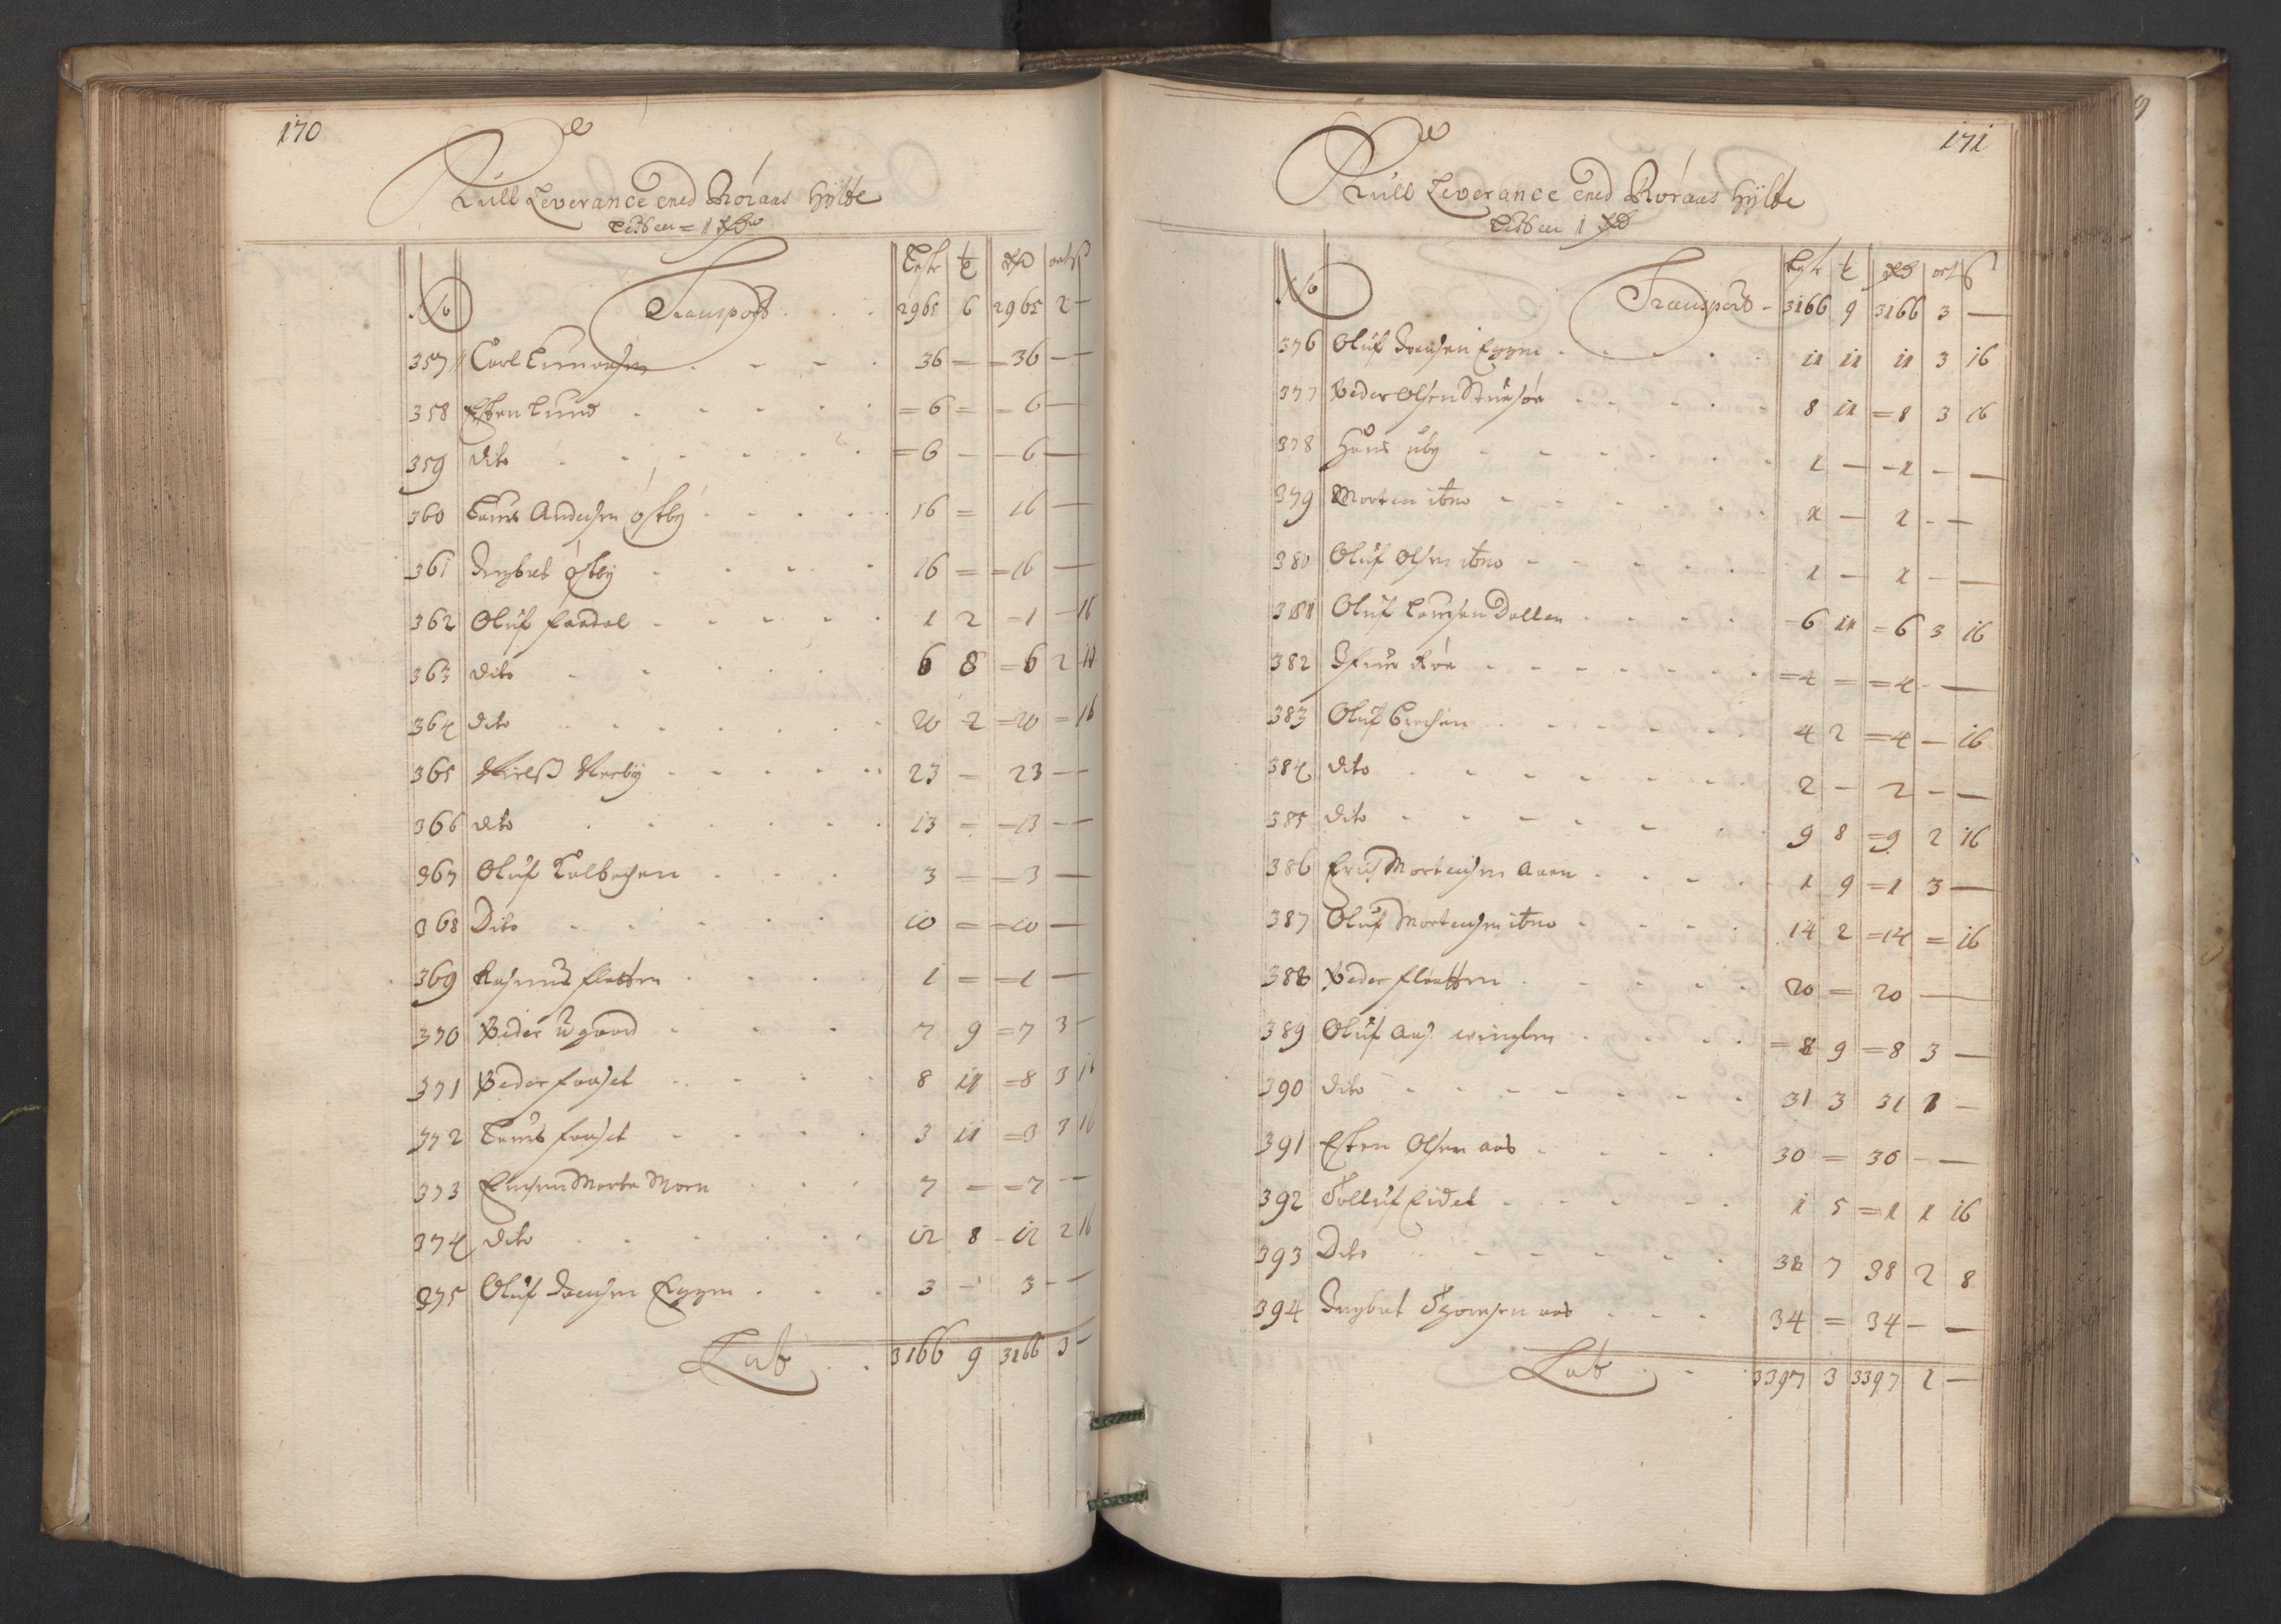 170
Kull Leverance ved Röraas Hytte
Lesten = 1 Rdr
No Transport . . . 2965 6 2965 2 —
357 Carl Simonsen . . . 36 = = 36 — —
358 Esten Lund . . . = 6 = = 6 —
359 dito . . . = 6 — — 6 —
360 Laurs Andersen östby . . . 16 = 16 —
361 Ingbret östby . . . 16 = = 16 —
362 Oluf faadal . . . 1 2 = 1 — 16
363 dito . . . 6 8 = 6 2 16
364 dito . . . 20 2 = 20 = 16
365 Nielß Nerby . . . 23 — 23 —
366 dito . . . 13 = = 13 —
367 Oluf Kolbersen . . . 3 — — 3 —
368 Dito . . . 10 = = 10 —
369 Rasmus flatten . . . 1 = = 1 —
370 Peder ugaard . . . 7 9 = 7 3 —
371 Peder forset . . . 8 11 = 8 3 16
372 Laurs forset . . . 3 11 = 3 3 16
373 Morten Moen . . . 7 — = 7 —
374 dito . . . 12 8 - 12 2 16
375 Oluf Joensen Eggen . . . 3 — 3 — —
Lat . . 3166 9 3166 3 —
171
Kull Leverance ved Röraas Hytte
Lesten 1 Rd
No Transport - 3166 9 3166 3 —
376 Oluf Joensen Eggen . . . 11 11 11 3 16
377 Peder Olsen Stuesöe . . . 8 11 = 8 3 16
378 Hans uby - - - 1 — — 1 — —
379 Morten ibno - - - 1 — 1 - —
380 Oluf Olsen ibno - - - 1 — 1 — —
381 Oluf Larsen Dallen . . . = 6 11 = 6 3 16
382 Röe - - - = 4 = = 4 - —
383 Oluf - - - 4 2 = 4 — 16
384 dito - - - 2 — 2 — —
385 dito - - - 9 8 = 9 2 16
386 Erich Mortensen Aaen . . . 1 9 = 1 3 —
387 Oluf Mortensen ibno - - - 14 2 = 14 = 16
388 Peder flaatten . . . 20 = 20 —
389 Oluf And. winglen . . . = 8 9 = 8 3 —
390 dito - - - 31 3 31 1 —
391 Esten Olsen aas . . . 30 = 30 — —
392 Tolluf Eidet - - - 1 5 = 1 1 16
393 Dito - - - 38 7 38 2 8
394 Ingbret Thoresen aas . . . 34 = 34 — —
Lat - - 3397 3 3397 2 —